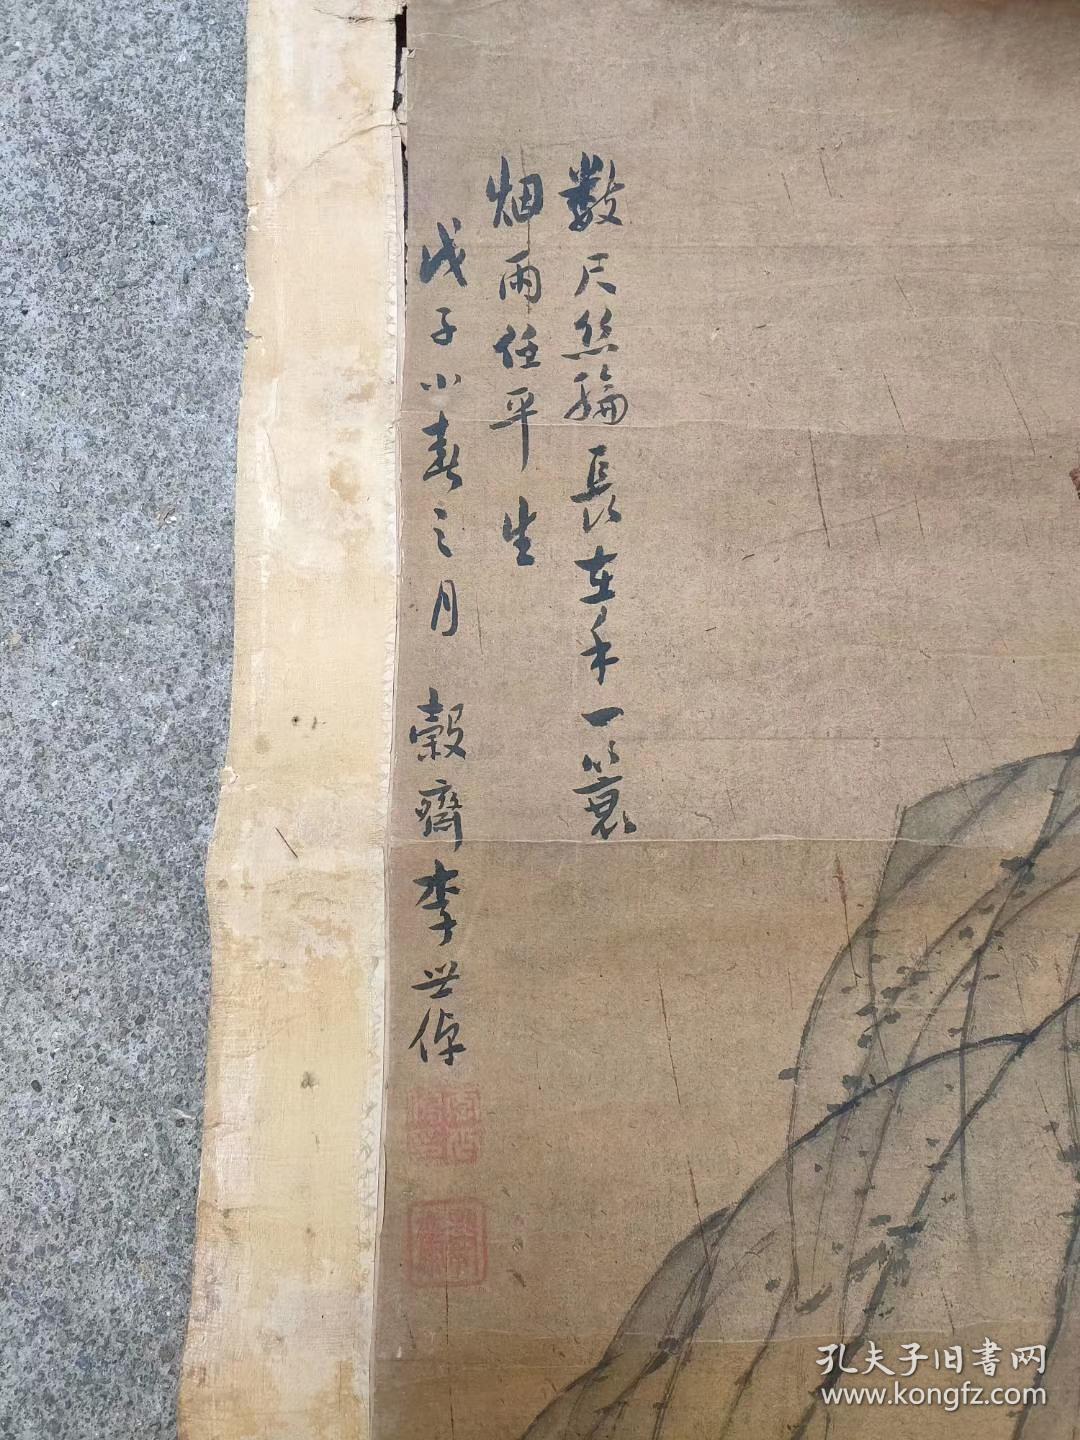 数尺丝纶長在手一蓑
烟雨任平生
戊子小春之月 穀齋李世倬
孔夫子旧書网
www.kongfz.com